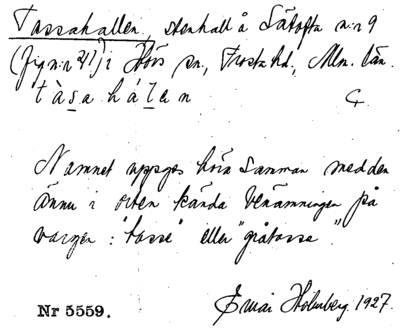 Tassahallen, stenhall å Sätofta n:r 9
(fig n:r 21) i Hörs sn., Frosta hd., Mlm. län.
tàsahálen
Namnet uppges höra samman med den
ännu i orten kända benämningen på
vargen: "tasse" eller "gråtasse".
Nr 5559.
Ernäi Holmberg. 1927.